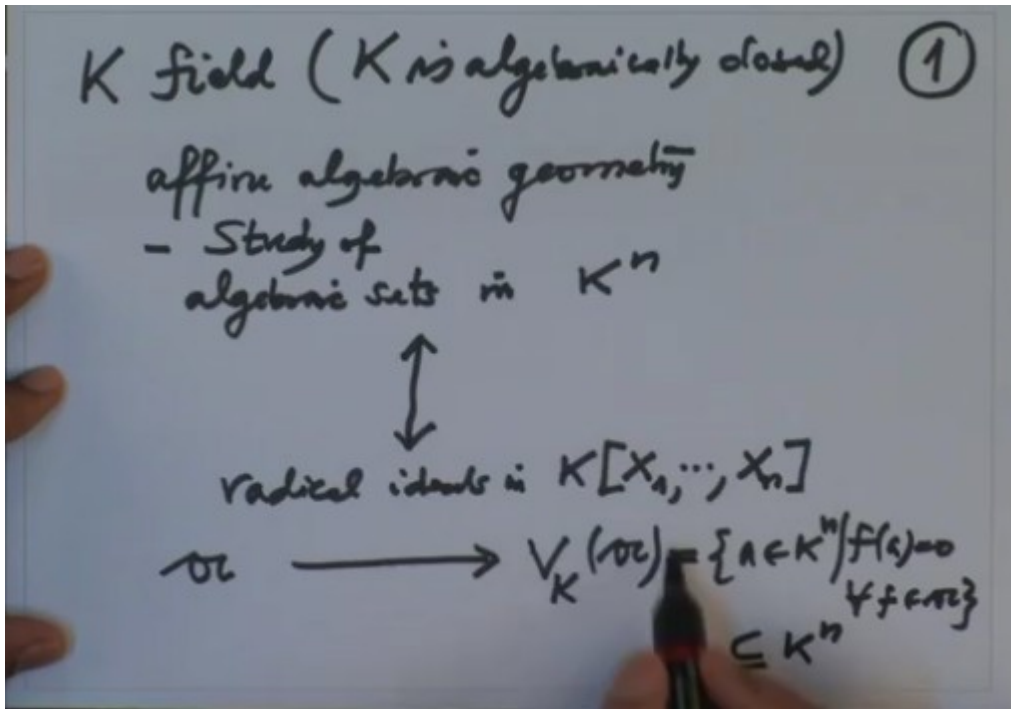 K field (K is algebraically closed) ①
affine algebraic geometry
- Study of
algebraic sets in Kⁿ
↕
radical ideals in K[X₁,⋯,Xₙ]
𝔞 ⟶ V_K(𝔞) = {a ∈ Kⁿ | f(a)=0
∀ f ∈ 𝔞}
⊆ Kⁿ